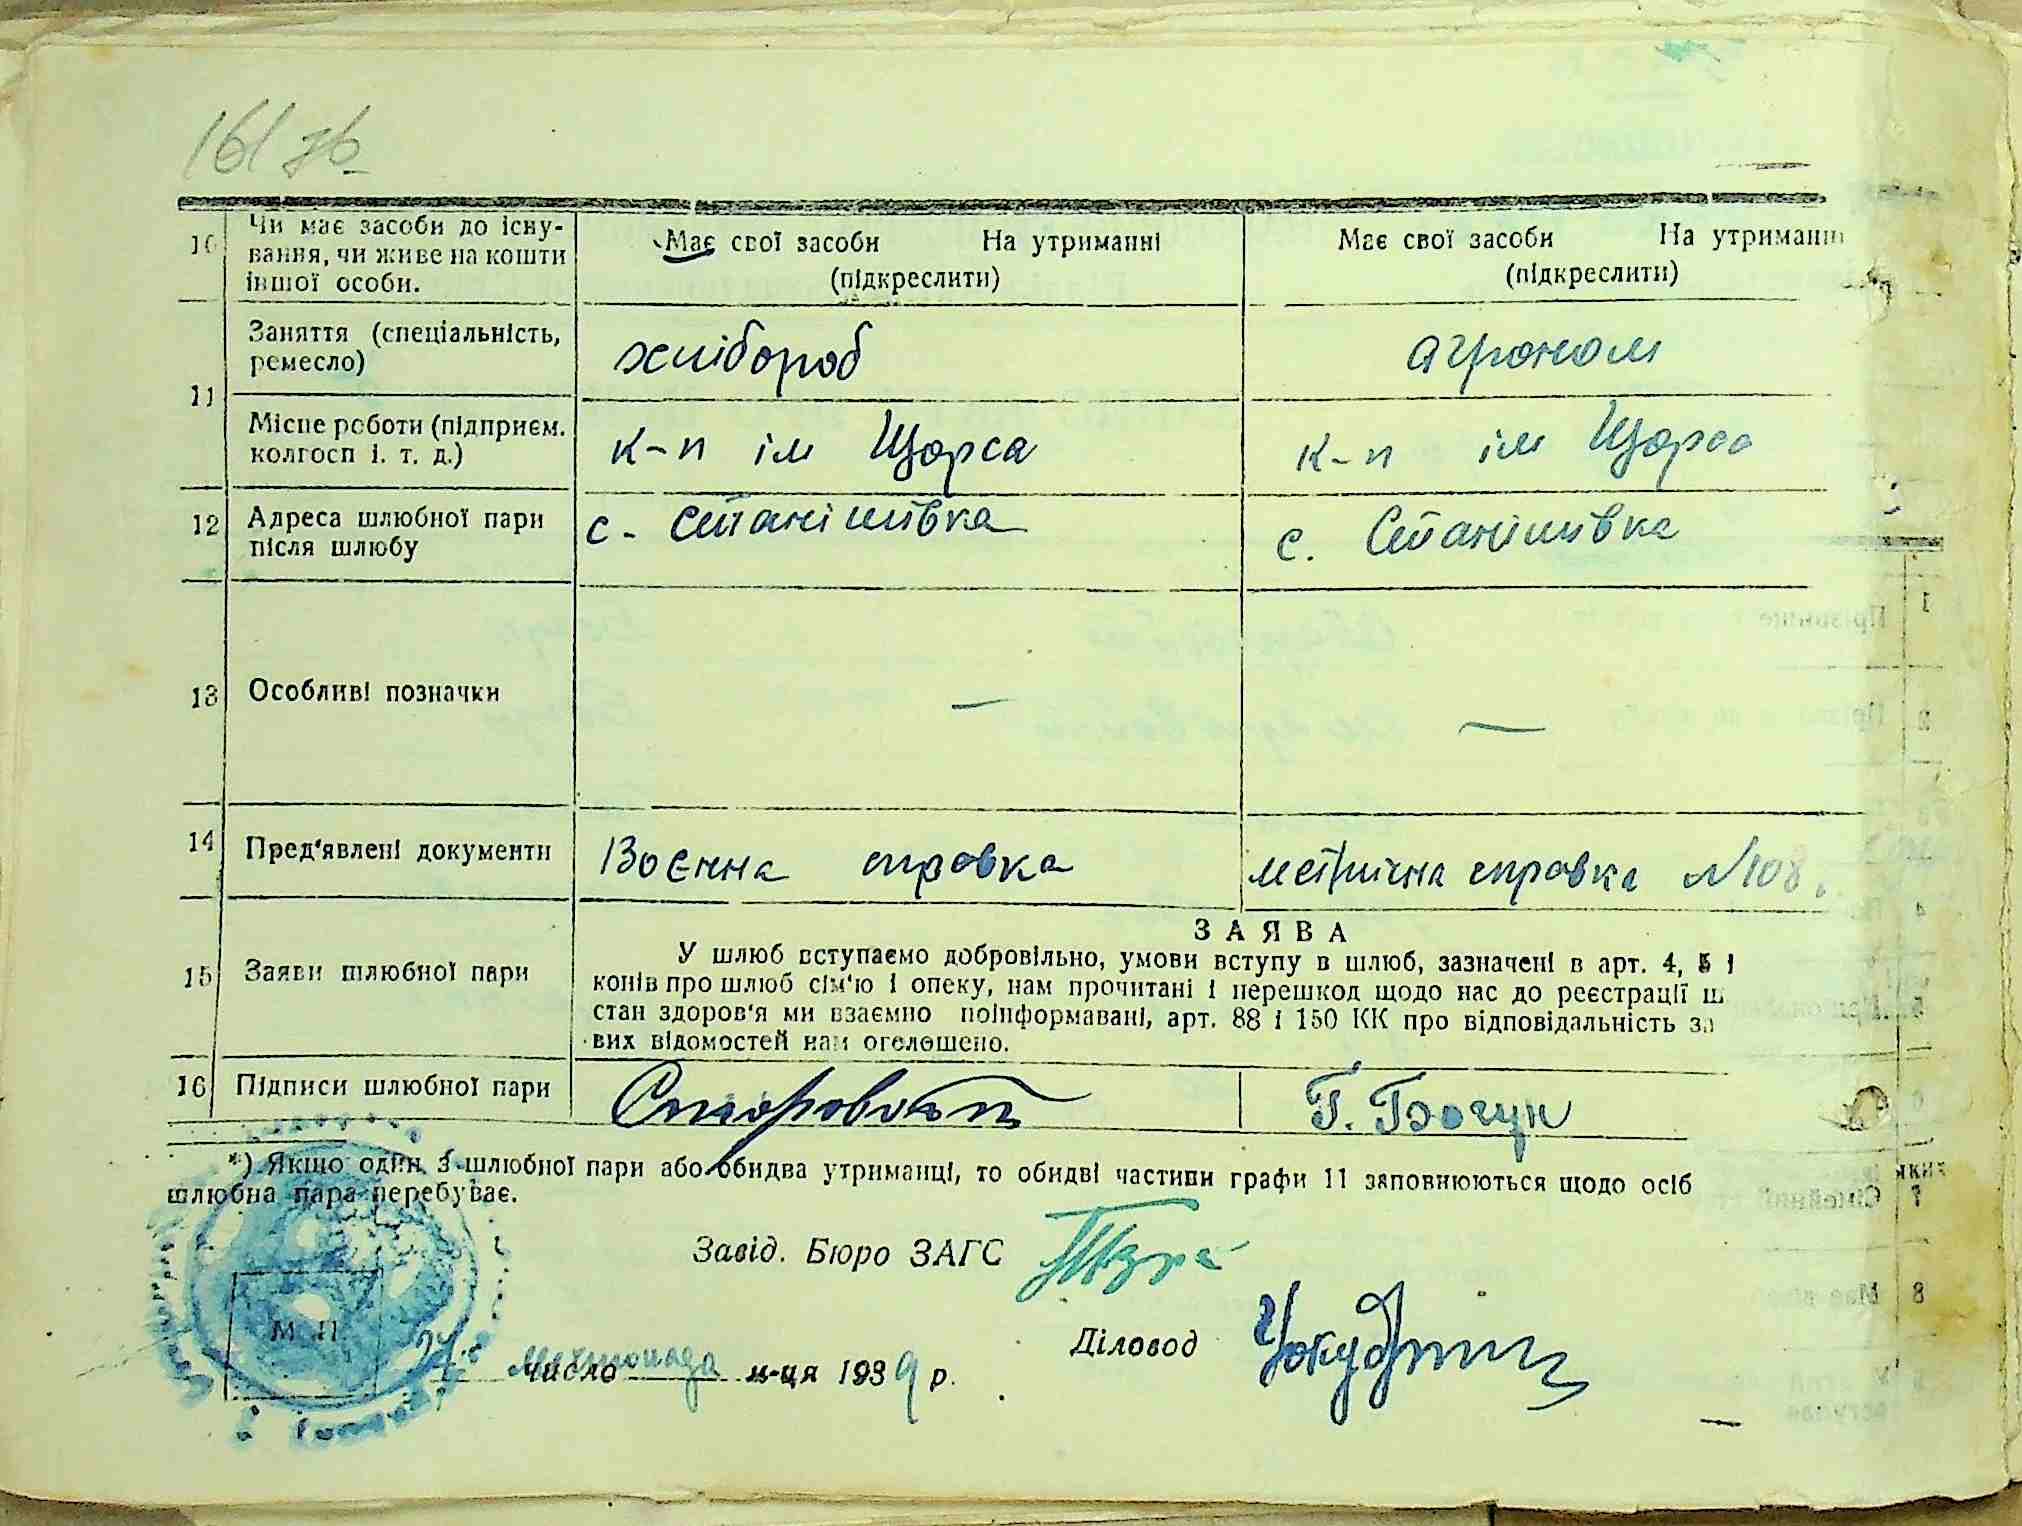 161 зв
10 Чи має засоби до існу-
вання, чи живе на кошти
іншої особи.
Має свої засоби На утриманні
(підкреслити)
Має свої засоби На утриманні
(підкреслити)
11
Заняття (спеціальність,
ремесло)
хлібороб
агроном
Місце роботи (підприєм.
колгосп і. т. д.)
к-п ім Щорса
к-п ім Щорса
12 Адреса шлюбної пари
після шлюбу
с. Станішівка
с. Станішівка
13 Особливі позначки
—
—
14 Пред'явлені документи
Воєнна справка
метрична справка №108
15 Заяви шлюбної пари
ЗАЯВА
У шлюб вступаємо добровільно, умови вступу в шлюб, зазначені в арт. 4, 5 і
конів про шлюб сім'ю і опеку, нам прочитані і перешкод щодо нас до реєстрації ш
стан здоров'я ми взаємно поінформавані, арт. 88 і 150 КК про відповідальність за
вих відомостей нам оголошено.
16 Підписи шлюбної пари
Г. Богун
*) Якщо один з шлюбної пари або обидва утриманці, то обидві частини графи 11 заповнюються щодо осіб
шлюбна пара перебуває.
Завід. Бюро ЗАГС
М. П.
Діловод
число листопада м-ця 1939 р.